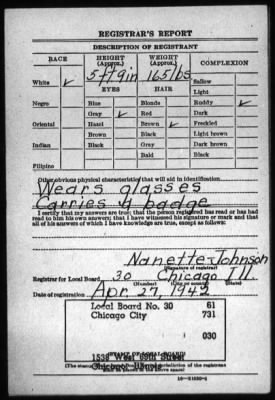 REGISTRAR'S REPORT
DESCRIPTION OF REGISTRANT
RACE HEIGHT (Approx.) WEIGHT (Approx.) COMPLEXION
5 ft 9 in 165 lbs
White ✓ Sallow
EYES HAIR Light
Negro Blue Blonde Ruddy ✓
Gray ✓ Red Dark
Oriental Hazel Brown ✓ Freckled
Brown Black Light brown
Indian Black Gray Dark brown
Bald Black
Filipino
Other obvious physical characteristics that will aid in identification
Wears glasses
Carries a badge
I certify that my answers are true; that the person registered has read or has had
read to him his own answers; that I have witnessed his signature or mark and that
all of his answers of which I have knowledge are true, except as follows:
Nanette Johnson
(Signature of registrar)
Registrar for Local Board 30 Chicago Ill.
(Number) (City or county) (State)
Date of registration Apr. 27, 1942
Local Board No. 30 61
Chicago City 731
030
1538 West 69th Street
(STAMP OF LOCAL BOARD)
Chicago Illinois
(The stamp of the Local Board having jurisdiction of the registrant
shall be placed in the above space)